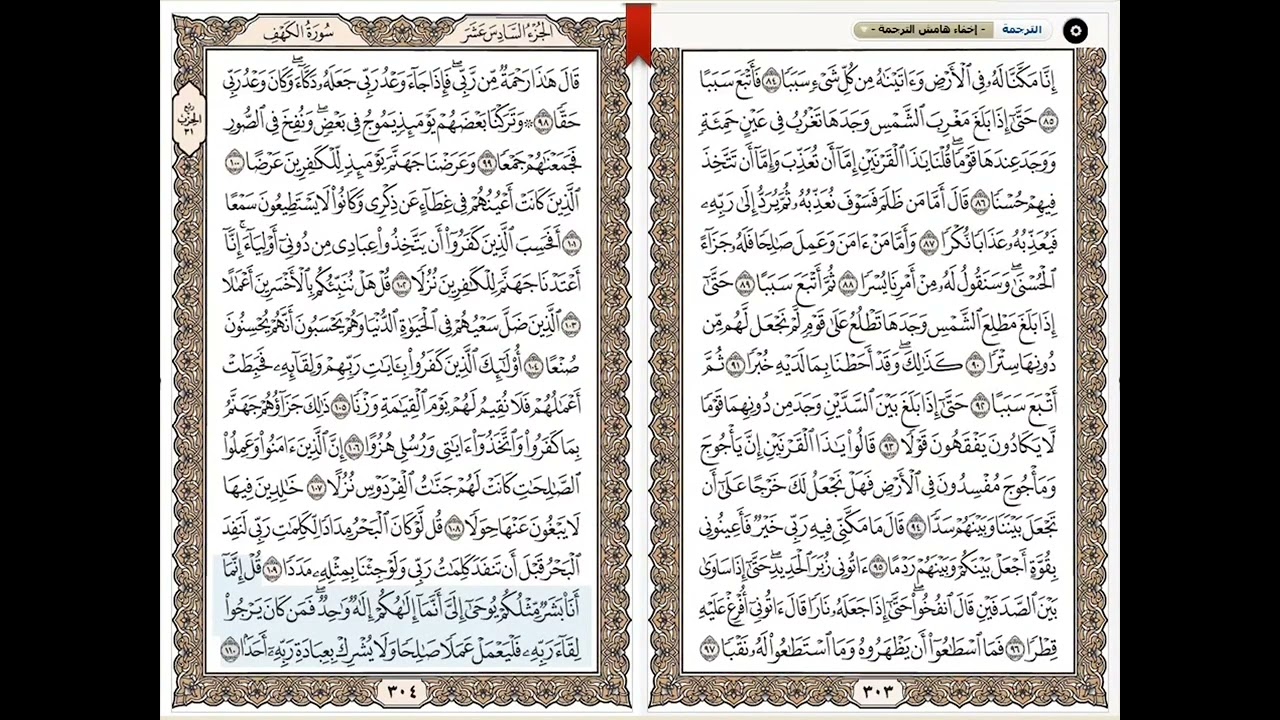 الترجمة - إخفاء هامش الترجمة -
إِنَّا مَكَّنَّا لَهُۥ فِى ٱلْأَرْضِ وَءَاتَيْنَٰهُ مِن كُلِّ شَىْءٍ سَبَبًا ٨٤ فَأَتْبَعَ سَبَبًا
٨٥ حَتَّىٰٓ إِذَا بَلَغَ مَغْرِبَ ٱلشَّمْسِ وَجَدَهَا تَغْرُبُ فِى عَيْنٍ حَمِئَةٍ
وَوَجَدَ عِندَهَا قَوْمًا ۗ قُلْنَا يَٰذَا ٱلْقَرْنَيْنِ إِمَّآ أَن تُعَذِّبَ وَإِمَّآ أَن تَتَّخِذَ
فِيهِمْ حُسْنًا ٨٦ قَالَ أَمَّا مَن ظَلَمَ فَسَوْفَ نُعَذِّبُهُۥ ثُمَّ يُرَدُّ إِلَىٰ رَبِّهِۦ
فَيُعَذِّبُهُۥ عَذَابًا نُّكْرًا ٨٧ وَأَمَّا مَنْ ءَامَنَ وَعَمِلَ صَٰلِحًا فَلَهُۥ جَزَآءً
ٱلْحُسْنَىٰ ۖ وَسَنَقُولُ لَهُۥ مِنْ أَمْرِنَا يُسْرًا ٨٨ ثُمَّ أَتْبَعَ سَبَبًا ٨٩ حَتَّىٰٓ
إِذَا بَلَغَ مَطْلِعَ ٱلشَّمْسِ وَجَدَهَا تَطْلُعُ عَلَىٰ قَوْمٍ لَّمْ نَجْعَل لَّهُم مِّن
دُونِهَا سِتْرًا ٩٠ كَذَٰلِكَ ۖ وَقَدْ أَحَطْنَا بِمَا لَدَيْهِ خُبْرًا ٩١ ثُمَّ
أَتْبَعَ سَبَبًا ٩٢ حَتَّىٰٓ إِذَا بَلَغَ بَيْنَ ٱلسَّدَّيْنِ وَجَدَ مِن دُونِهِمَا قَوْمًا
لَّا يَكَادُونَ يَفْقَهُونَ قَوْلًا ٩٣ قَالُوا۟ يَٰذَا ٱلْقَرْنَيْنِ إِنَّ يَأْجُوجَ
وَمَأْجُوجَ مُفْسِدُونَ فِى ٱلْأَرْضِ فَهَلْ نَجْعَلُ لَكَ خَرْجًا عَلَىٰٓ أَن
تَجْعَلَ بَيْنَنَا وَبَيْنَهُمْ سَدًّا ٩٤ قَالَ مَا مَكَّنِّى فِيهِ رَبِّى خَيْرٌ فَأَعِينُونِى
بِقُوَّةٍ أَجْعَلْ بَيْنَكُمْ وَبَيْنَهُمْ رَدْمًا ٩٥ ءَاتُونِى زُبَرَ ٱلْحَدِيدِ ۖ حَتَّىٰٓ إِذَا سَاوَىٰ
بَيْنَ ٱلصَّدَفَيْنِ قَالَ ٱنفُخُوا۟ ۖ حَتَّىٰٓ إِذَا جَعَلَهُۥ نَارًا قَالَ ءَاتُونِىٓ أُفْرِغْ عَلَيْهِ
قِطْرًا ٩٦ فَمَا ٱسْطَٰعُوٓا۟ أَن يَظْهَرُوهُ وَمَا ٱسْتَطَٰعُوا۟ لَهُۥ نَقْبًا ٩٧
٣٠٣
الجُزْءُ السَّادِسَ عَشَرَ
سُورَةُ الكَهْفِ
قَالَ هَٰذَا رَحْمَةٌ مِّن رَّبِّى ۖ فَإِذَا جَآءَ وَعْدُ رَبِّى جَعَلَهُۥ دَكَّآءَ ۖ وَكَانَ وَعْدُ رَبِّى
حَقًّا ٩٨ ۞ وَتَرَكْنَا بَعْضَهُمْ يَوْمَئِذٍ يَمُوجُ فِى بَعْضٍ ۖ وَنُفِخَ فِى ٱلصُّورِ
رُبْع الحِزْب ٣١
فَجَمَعْنَٰهُمْ جَمْعًا ٩٩ وَعَرَضْنَا جَهَنَّمَ يَوْمَئِذٍ لِّلْكَٰفِرِينَ عَرْضًا ١٠٠
ٱلَّذِينَ كَانَتْ أَعْيُنُهُمْ فِى غِطَآءٍ عَن ذِكْرِى وَكَانُوا۟ لَا يَسْتَطِيعُونَ سَمْعًا
١٠١ أَفَحَسِبَ ٱلَّذِينَ كَفَرُوٓا۟ أَن يَتَّخِذُوا۟ عِبَادِى مِن دُونِىٓ أَوْلِيَآءَ ۚ إِنَّآ
أَعْتَدْنَا جَهَنَّمَ لِلْكَٰفِرِينَ نُزُلًا ١٠٢ قُلْ هَلْ نُنَبِّئُكُم بِٱلْأَخْسَرِينَ أَعْمَٰلًا
١٠٣ ٱلَّذِينَ ضَلَّ سَعْيُهُمْ فِى ٱلْحَيَوٰةِ ٱلدُّنْيَا وَهُمْ يَحْسَبُونَ أَنَّهُمْ يُحْسِنُونَ
صُنْعًا ١٠٤ أُو۟لَٰٓئِكَ ٱلَّذِينَ كَفَرُوا۟ بِـَٔايَٰتِ رَبِّهِمْ وَلِقَآئِهِۦ فَحَبِطَتْ
أَعْمَٰلُهُمْ فَلَا نُقِيمُ لَهُمْ يَوْمَ ٱلْقِيَٰمَةِ وَزْنًا ١٠٥ ذَٰلِكَ جَزَآؤُهُمْ جَهَنَّمُ
بِمَا كَفَرُوا۟ وَٱتَّخَذُوٓا۟ ءَايَٰتِى وَرُسُلِى هُزُوًا ١٠٦ إِنَّ ٱلَّذِينَ ءَامَنُوا۟ وَعَمِلُوا۟
ٱلصَّٰلِحَٰتِ كَانَتْ لَهُمْ جَنَّٰتُ ٱلْفِرْدَوْسِ نُزُلًا ١٠٧ خَٰلِدِينَ فِيهَا
لَا يَبْغُونَ عَنْهَا حِوَلًا ١٠٨ قُل لَّوْ كَانَ ٱلْبَحْرُ مِدَادًا لِّكَلِمَٰتِ رَبِّى لَنَفِدَ
ٱلْبَحْرُ قَبْلَ أَن تَنفَدَ كَلِمَٰتُ رَبِّى وَلَوْ جِئْنَا بِمِثْلِهِۦ مَدَدًا ١٠٩ قُلْ إِنَّمَآ
أَنَا۠ بَشَرٌ مِّثْلُكُمْ يُوحَىٰٓ إِلَىَّ أَنَّمَآ إِلَٰهُكُمْ إِلَٰهٌ وَٰحِدٌ ۖ فَمَن كَانَ يَرْجُوا۟
لِقَآءَ رَبِّهِۦ فَلْيَعْمَلْ عَمَلًا صَٰلِحًا وَلَا يُشْرِكْ بِعِبَادَةِ رَبِّهِۦٓ أَحَدًۢا ١١٠
٣٠٤